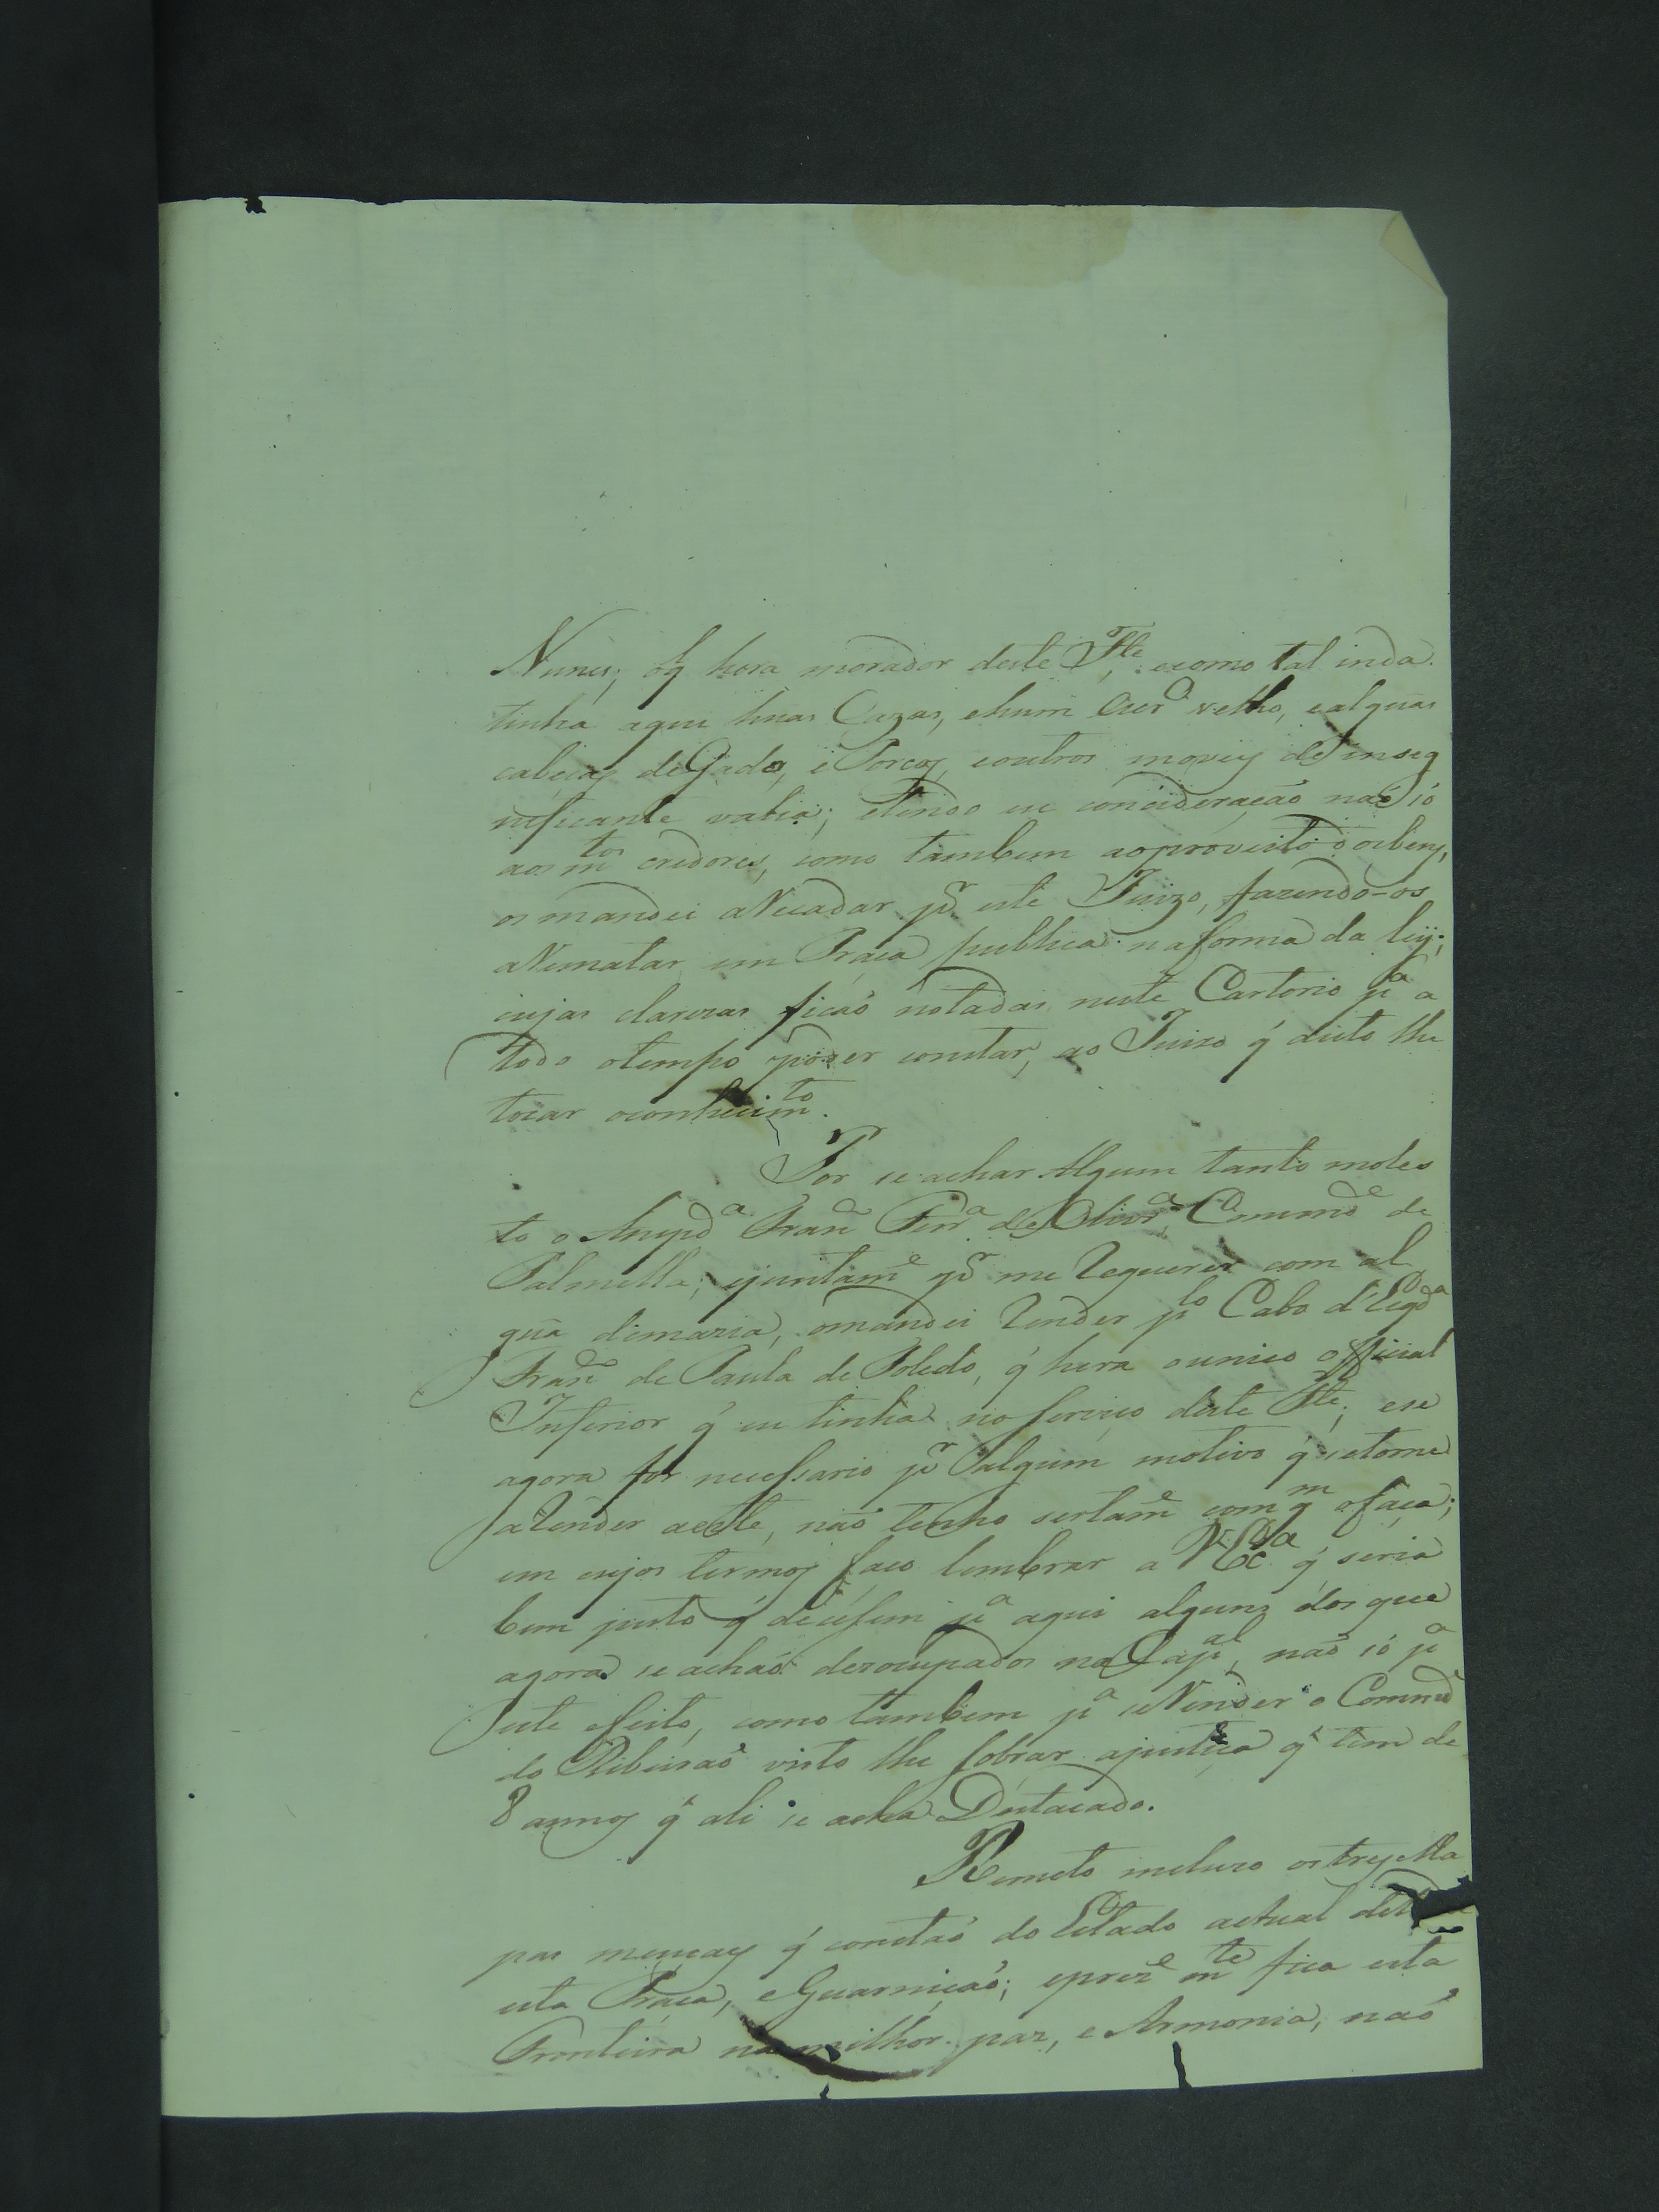 Nunes, oq̃ hora morador deste Fte, ecomo tal inda
tinha aqui húas Cazas, ehum velho, ealgũas
cabeças de Gado, e Porcos, eoutros moveis de inseg
nificante valia; etendo eu concideração não só
aos mtos credores, como tambem aoproveito dosbens,
os mandei aRecadar pr este Juizo, fazendo-os
aRematar em Praça publica na forma da ley;
cujas clarezas ficão notadas neste Cartorio pa a
todo otempo poder constar, ao Juizo q̃ disto lhe
tocar oconhecimto.
Por se achar Algum tanto moles
to o Anspda Franco Ferra de Olivra Commde de
Palmella; ejuntame pr me Requerer com al
gũa dimazia, omandei Render plo Cabo d'Esqda
Franco de Paula de Toledo, q̃ hera ounico official
Inferior q̃ eu tinha no serviço deste Fte; ese
agora for necessario pr algum motivo q̃ setorne
aRender aeste, não tenho sertame com qm ofaça;
em cujos termos faço lembrar a V Exa q̃ seria
bem justo q̃ decessem pa aqui alguns dos que
agora se achão dezocupados na Capal, não só pa
este efeito, como tambem pa seRender o Commde
do Ribeirão visto lhe sobrar ajustiça q̃ tem de
8 annos q̃ ali se acha Destacado.
Remeto incluzo os tres Ma
pas mençaes q̃ constão do Estado actual
esta Praça, eGuarnição; eprezemte fica esta
Fronteira na milhor paz, e Armonia, não